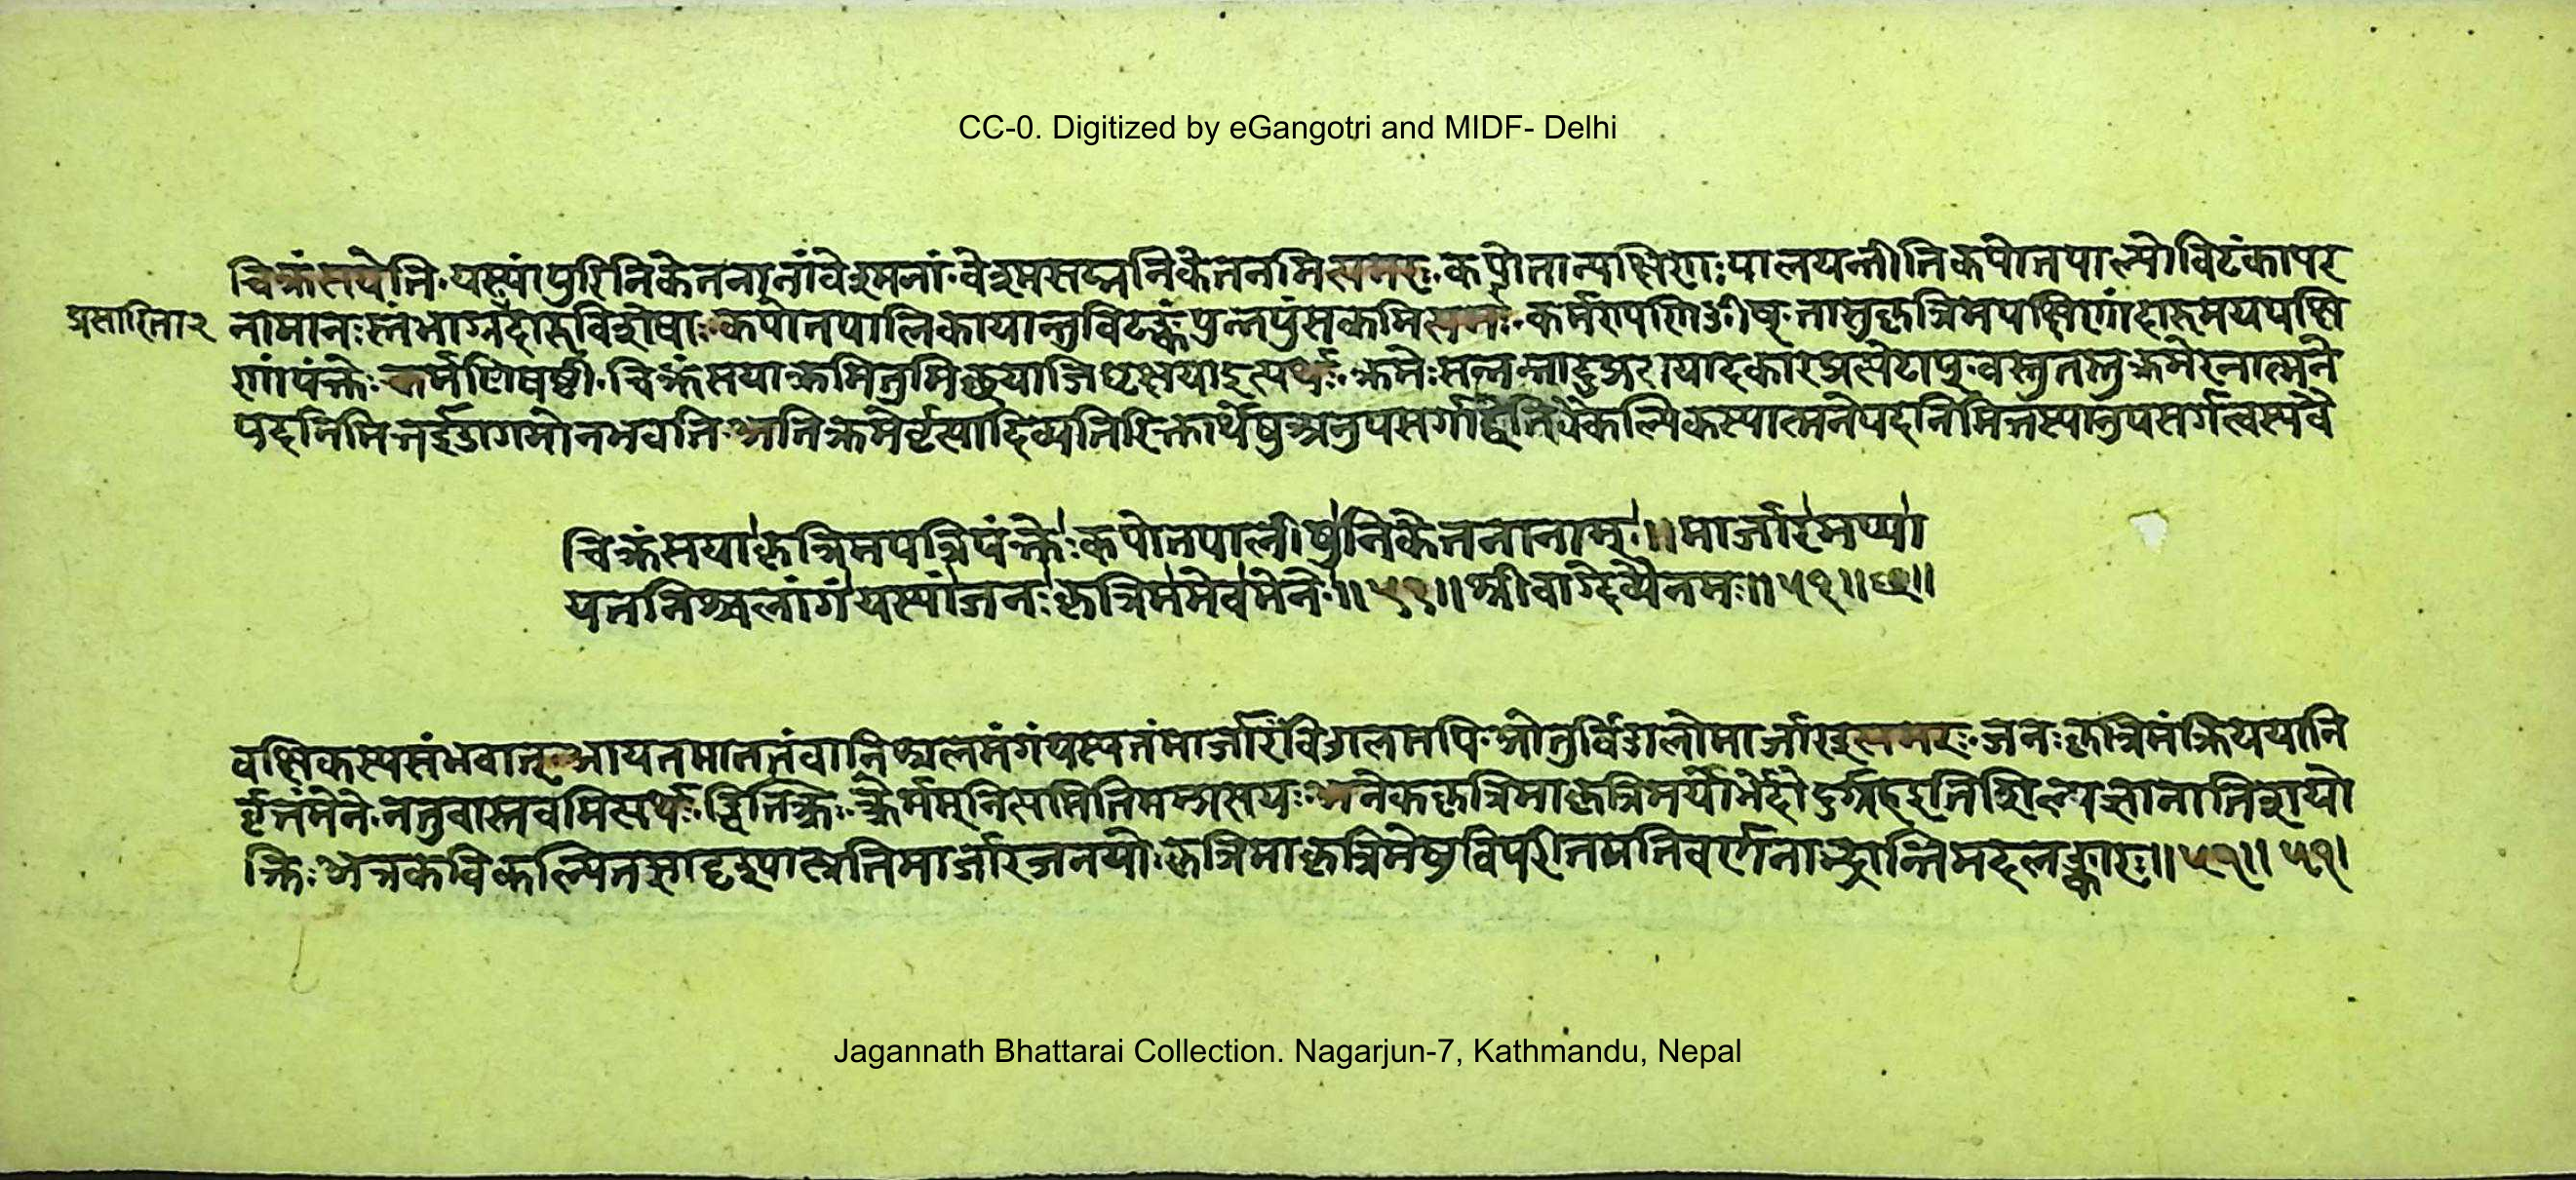 CC-0. Digitized by eGangotri and MIDF- Delhi
चिक्रंसयेति यस्यां पुरि निकेतनानां वेश्मनां वेश्मसद्मनिकेतनमित्यमरः कपोतान्पक्षिणः पालयन्तीति कपोतपाल्यो विटंकापर
प्रसारिता २
नामानः स्तंभाग्रदारुविशेषाः कपोतपालिकायान्तु विटङ्कं पुन्नपुंसकमित्यमरः कर्मण्यण् ङीष् तासु कृत्रिमपक्षिणां दारूमयपक्षि
णां पंक्तेः कर्मणि षष्ठी चिक्रंसया क्रमितुमिच्छया जिघृक्षया इत्यर्थः क्रमेः सन्नन्ताद् अप्रत्ययादकारप्रत्यये टाप् वस्तुतस्तु क्रमेरनात्मने
पदनिमित्त इडागमो न भवति क्रमेर्वृत्त्यादिव्यतिरिक्तार्थेषु अनुपसर्गाद्वेति वैकल्पिकस्यात्मनेपदनिमित्तस्यानुपसर्गत्वस्यवै
चिक्रंसया कृत्रिमपत्रिपंक्तेः कपोतपालीषु निकेतनानाम् ॥ मार्जारमप्या
यतनिश्चलांगं यस्यां जनः कृत्रिममेव मेने ॥ ५१ ॥ श्रीवाग्देव्यै नमः ॥ ५१ ॥ छ ॥
वक्षिकस्य संभवात् आयतमाततं वा निश्चलमंगं यस्य तं मार्जारं विडालमपि ओतुर्विडालो मार्जार इत्यमरः जनः कृत्रिमं क्रियया नि
र्वृत्तं मेने न तु वास्तवमित्यर्थः ड्वितः क्त्रिः क्त्रेर्मम्नित्यमिति मम्प्रत्ययः अनेक कृत्रिमाकृत्रिमयोर्भेदो दुर्ग्रह इति शिल्पज्ञानातिशयो
क्तिः अत्र कविकल्पितसादृश्यात्पत्रिमार्जारजनयोः कृत्रिमाकृत्रिमेषु विपरीतमतिवर्णनाद्भ्रान्तिमदलङ्कारः ॥ ५१ ॥ ५१ ।
Jagannath Bhattarai Collection. Nagarjun-7, Kathmandu, Nepal